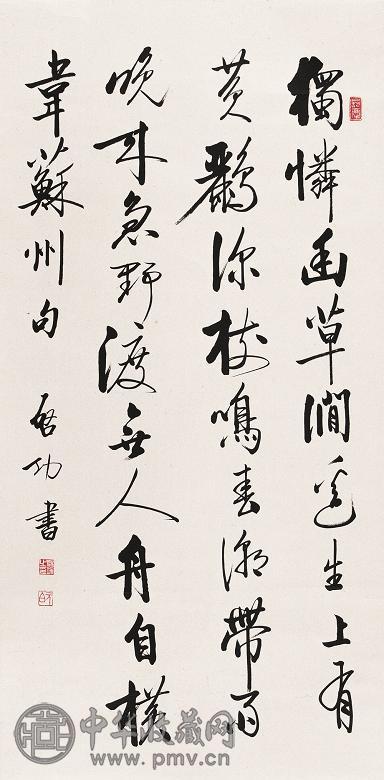 獨憐幽草澗邊生上有
黄鸝深樹鳴春潮帶雨
晚来急野渡無人舟自横
韋蘇州句 啟功書
中华收藏网
www.pmv.cn